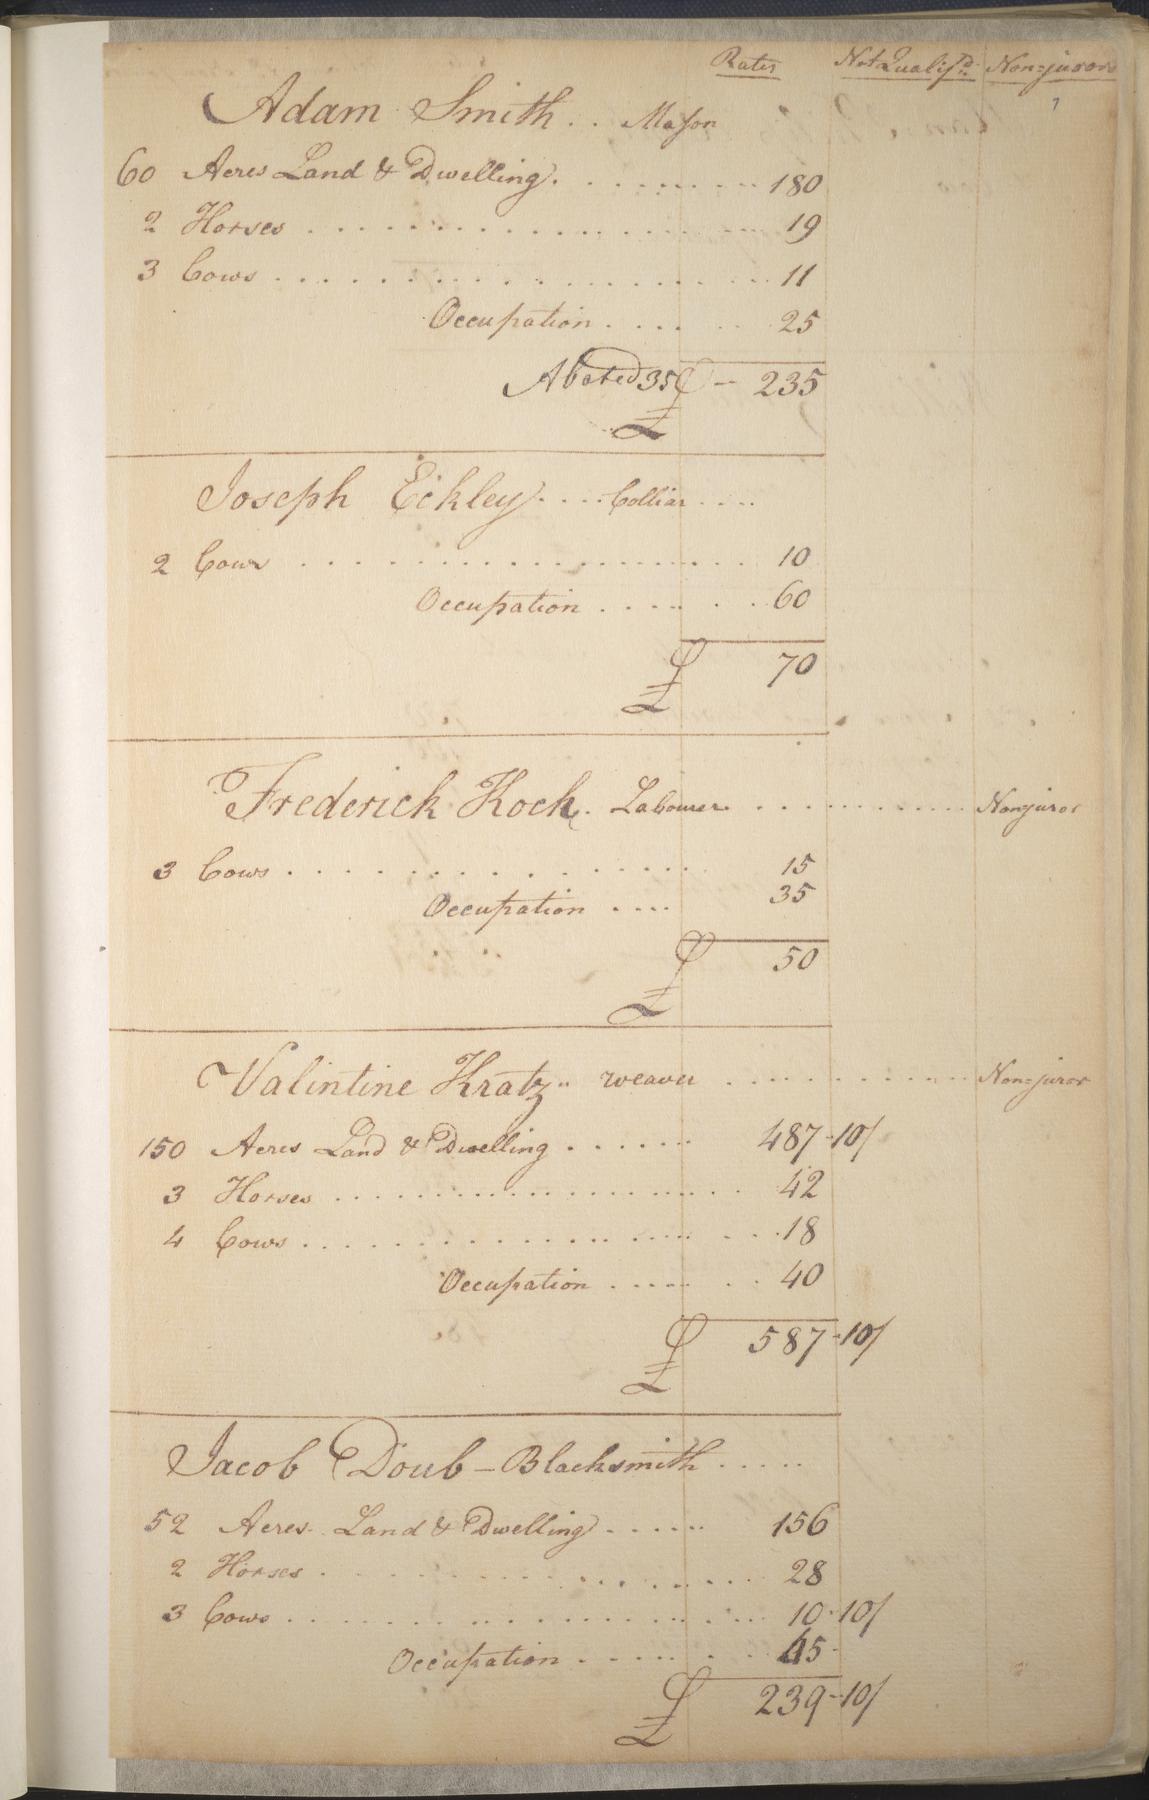 Rates Not Qualifd. Non=jurors
7
Adam Smith .. Mason
60 Acres Land & Dwelling ......... 180
2 Horses ......... 19
3 Cows ......... 11
Occupation .... 25
Abated 35 £ - 235
Joseph Eckley .... Colliar ....
2 Cows ......... 10
Occupation ...... 60
£ 70
Frederick Kock. Labourer ......... Nonjuror
3 Cows ......... 15
Occupation .... 35
£ 50
Valintine Kratz .. weaver ......... Non=juror
150 Acres Land & Dwelling ...... 487-10/
3 Horses ......... 42
4 Cows ......... 18
Occupation ...... 40
£ 587-10/
Jacob Doub - Blacksmith .....
52 Acres Land & Dwelling ...... 156
2 Horses ......... 28
3 Cows ......... 10-10/
Occupation ...... 45
£ 239-10/